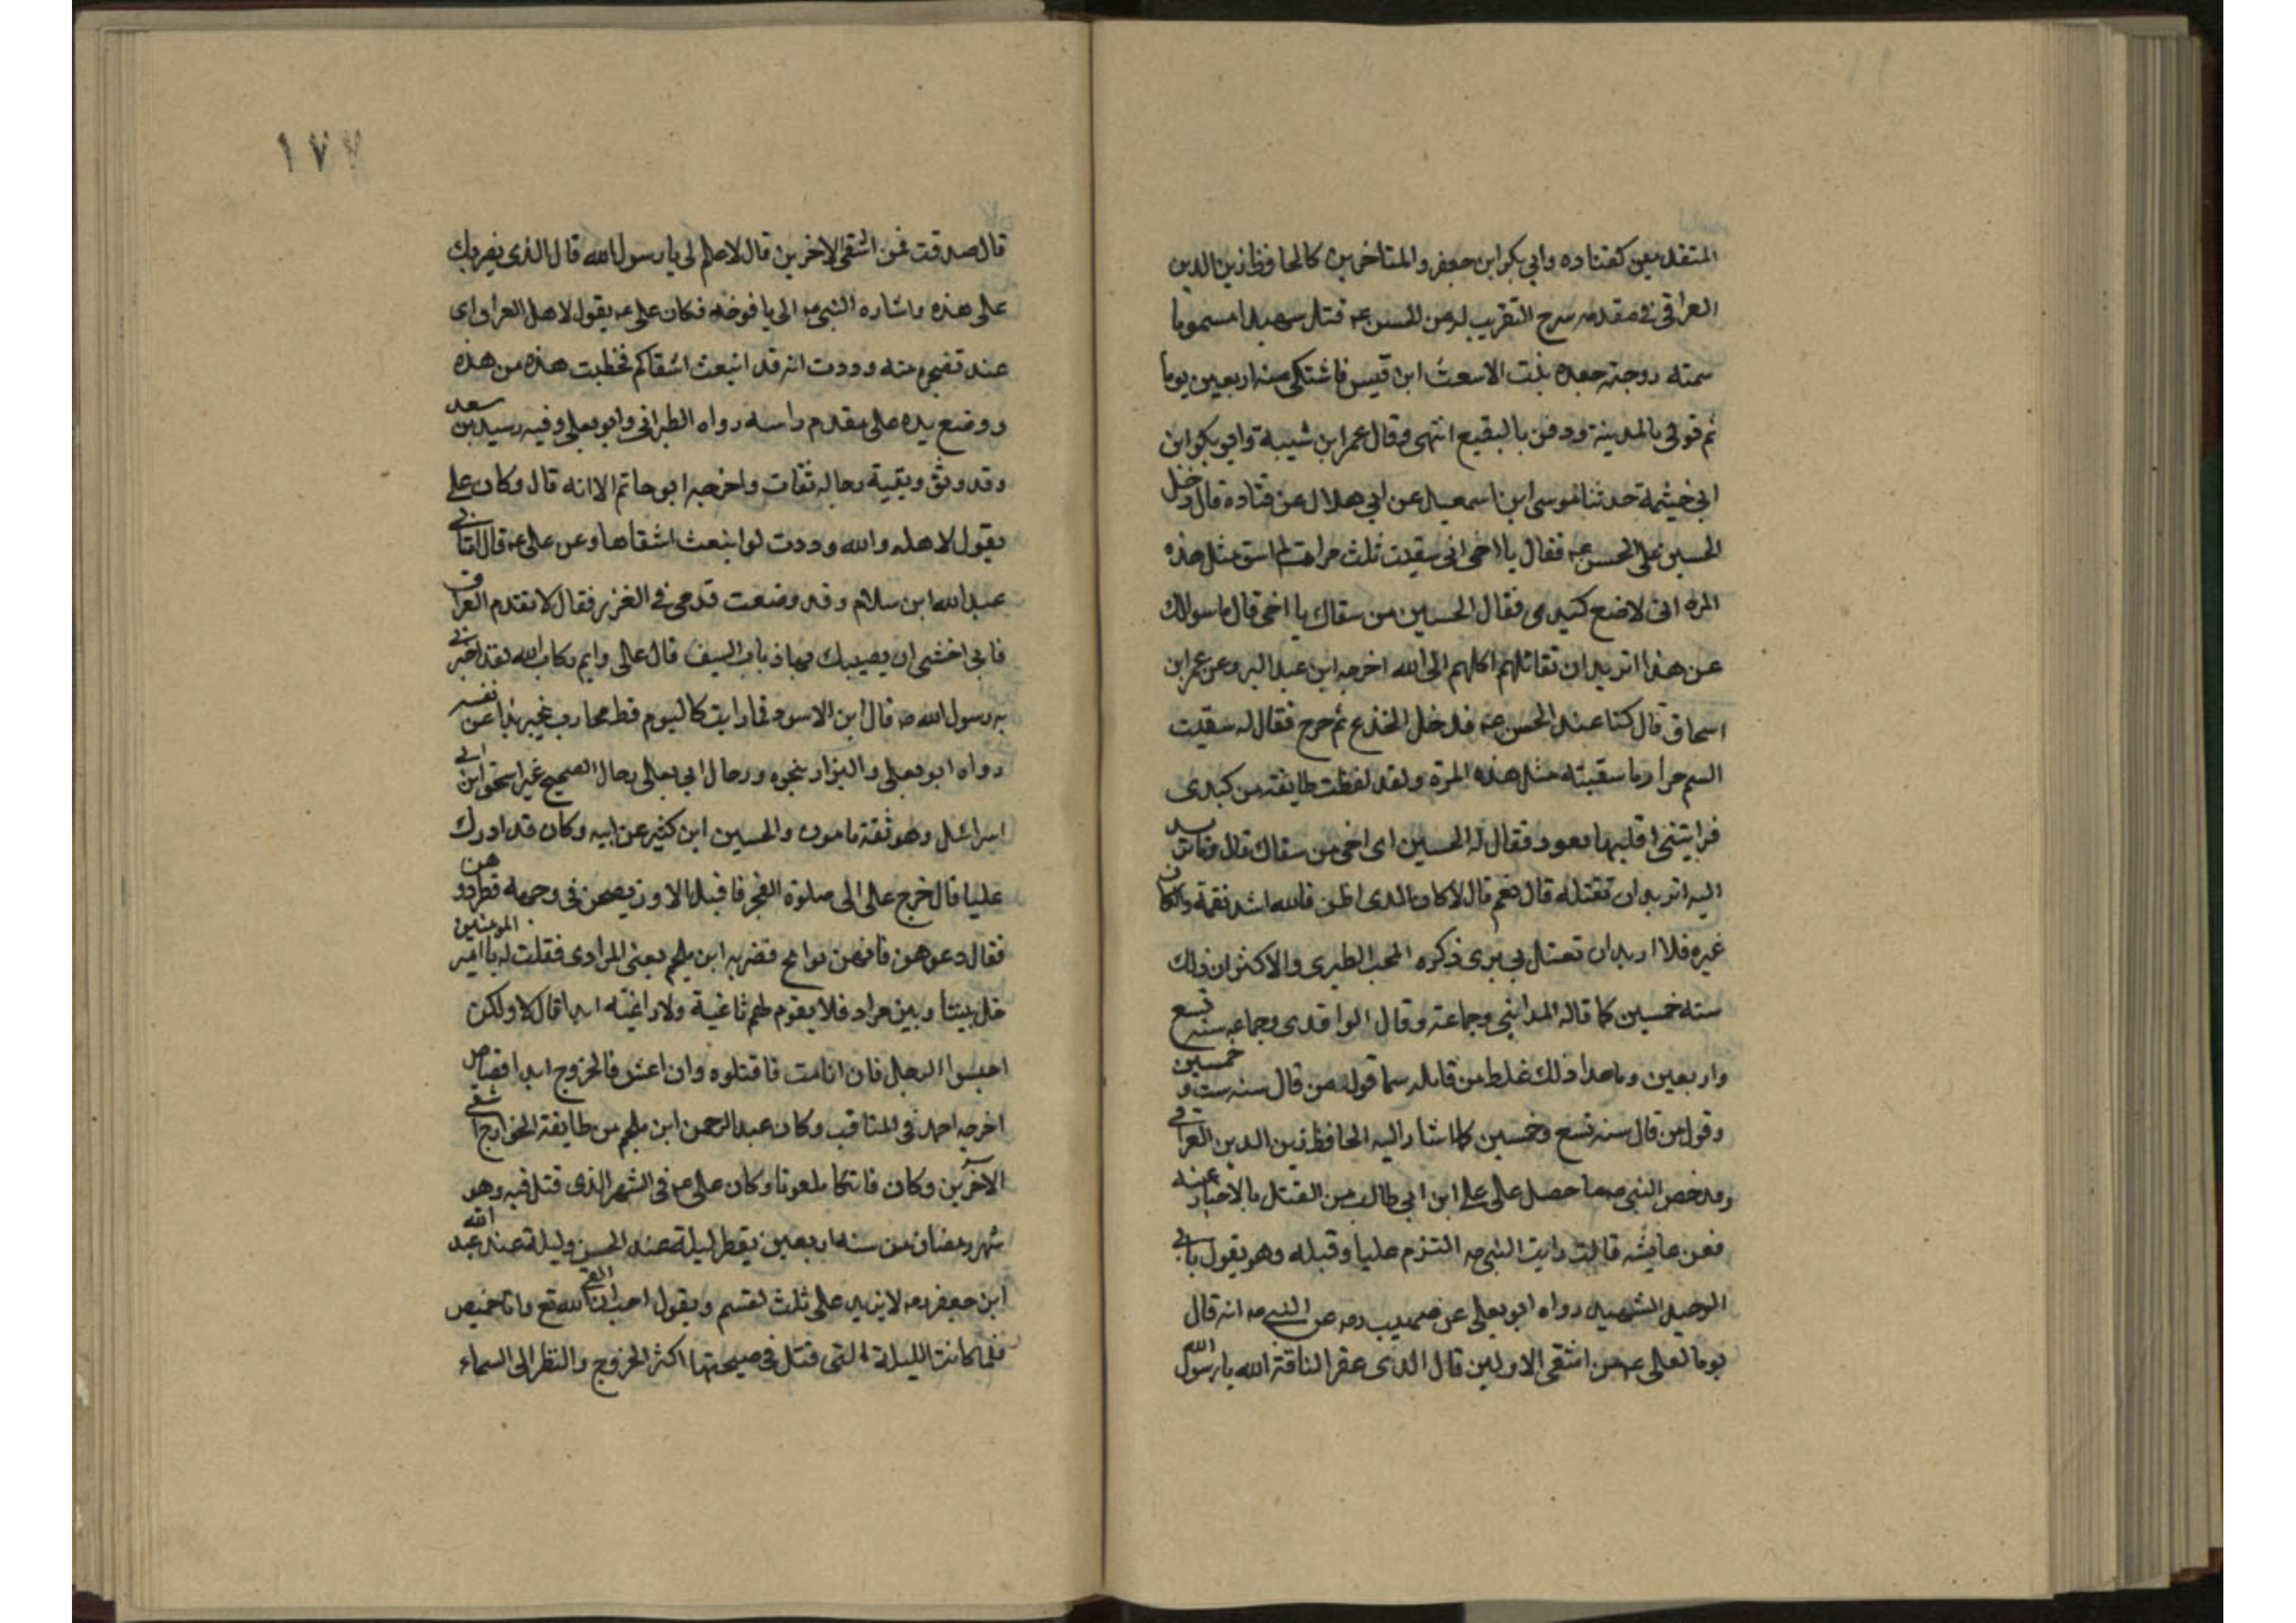 المتقدمين كقتاده وابي بكر ابن جعفر والمتاخرين كالحافظ زين الدين
العراقي في مقدمه شرح التقريب له من الحسن عه قتل شهيدا مسموما
سمته زوجته جعده بنت الاشعث ابن قيس فاشتكى منه اربعين يوما
ثم توفى بالمدينة ودفن بالبقيع انتهى وقال عمر ابن شيبة وابو بكر ابن
ابي خيثمة حدثنا موسى ابن اسمعيل عن ابي هلال عن قتاده قال دخل
الحسين على الحسن عه فقال يا اخى انى سقيت ثلث مرات لم اسق مثل هذه
المره انى لاضع كبدى فقال الحسين من سقاك يا اخى قال ما سوالك
عن هذا اتريد ان تقاتلهم اكلهم الى الله اخرجه ابن عبد البر وعن عمر ابن
اسحاق قال كنا عند الحسن عه فدخل المخدع ثم خرج فقال له سقيت
السم مرارا وما سقيته مثل هذه المرة ولقد لفظت طايفة من كبدى
فرايتنى اقلبها بعود فقال له الحسين اى اخى من سقاك قال وما تريد
اليه اتريد ان تقتله قال نعم قال لان كان الذى اظن فالله اشد نقمة وان كان
غيره فلا اريد ان تقتل بى برى ذكره المحب الطبرى والاكثر ان ذلك
سنه خمسين كما قاله المدائنى وجماعته وقال الواقدى وجماعه سنه تسع
واربعين وما عدا ذلك غلط من قايله سيما قول من قال سنه ست و خمسين
وقول من قال سنه تسع وخمسين كما اشار اليه الحافظ زين الدين العراقى
وقد خص النبى صه ما حصل على على ابن ابى طالب من القتل بالاخبار عنه
فعن عايشه قالت رايت النبى صه التزم عليا وقبله وهو يقول بابى
الوحيد الشهيد رواه ابو يعلى عن صهيب رضه عن النبى صه انه قال
يوما لعلى عه من اشقى الاولين قال الذى عقر الناقة الله يا رسول الله
١٧٧
قال صدقت فمن اشقى الاخرين قال لا علم لى يا رسول الله قال الذى يضربك
على هذه واشاره النبى صه الى يافوخه فكان على عه يقول لاهل العراق اى
عند تضجره منه وودت انه قد انبعث اشقاكم فخطبت هذه من هذه
ووضع يده على مقدم راسه رواه الطبرانى وابو يعلى وفيه رشيد بن سعد
وقد وثق وبقية رجاله ثقات واخرجه ابو حاتم الا انه قال وكان على
يقول لاهله والله وددت لو انبعث اشقاها وعن على عه قال اتانى
عبد الله ابن سلام وقد وضعت قدمى في الغرز فقال لا تقدم العراق
فانى اخشى ان يصيبك بها ذباب السيف قال على وايم الله لقد اخبرنى
به رسول الله صه قال ابن الاسود فما رايت كاليوم قط محارب يخبر بذا عن نفسه
رواه ابو يعلى والبزار بنحوه ورجال ابى يعلى رجال الصحيح غير اسحق ابن ابى
اسرائل وهو ثقة مامون والحسين ابن كثير عن ابيه وكان قد ادرك
عليا قال خرج على الى صلوة الفجر فاقبل الاوز يصحن فى وجهه فطردوهن
فقال دعوهن فانهن نوائح فضربه ابن ملجم يعنى المرادى فقلت له يا امير المومنين
خل بيننا وبين مراد فلا يقوم لهم ثاغية ولا راغية ابدا قال لا ولكن
احبسوا الرجل فان انا مت فاقتلوه وان اعش فالجروح ابدا قصاص
اخرجه احمد فى المناقب وكان عبد الرحمن ابن ملجم من طايفة الخوارج اشقى
الاخرين وكان فاتكا ملعونا وكان على عه فى الشهر الذى قتل فيه وهو
شهر رمضان من سنه اربعين يفطر ليلة عند الحسن وليلة عند عبد الله
ابن جعفر رضه لا يزيد على ثلث لقتسم ويقول احب ان القى الله تع وانا خميص
فلما كانت الليلة التى قتل فى صبيحتها اكثر الخروج والنظر الى السماء